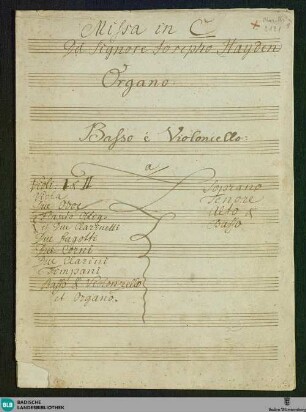 Missa in C
Del Signore Josepho Hayden
Organo
Basso è Violoncello
a
Violi. I & II
Viola
Due Oboe
Flauto
Due Clarinetti
Due Fagotti
Due Corni
Due Clarini
Timpani
Basso & Violoncello
et Organo.
Soprano
Tenore
Alto &
Basso
BLB BADISCHE
LANDESBIBLIOTHEK
Baden-Württemberg